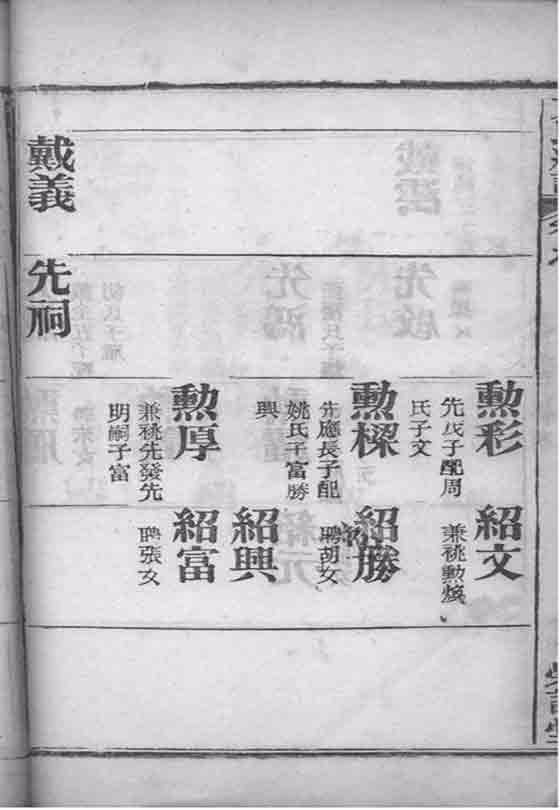 勲彩
先茂子配周
氏子文
紹文
兼祧勲煥
勲樑
先應長子配
姚氏子富勝
興
紹勝
聘胡女
紹興
勲厚
兼祧先發先
明嗣子富
紹富
聘張女
戴義
先祠